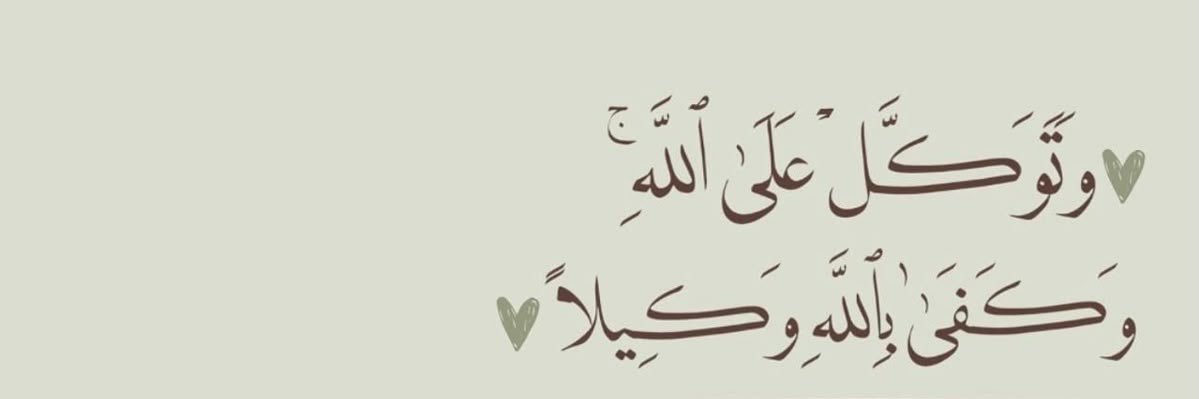 وَتَوَكَّلۡ عَلَىٰ ٱللَّهِۚ
وَكَفَىٰ بِٱللَّهِ وَكِيلًا